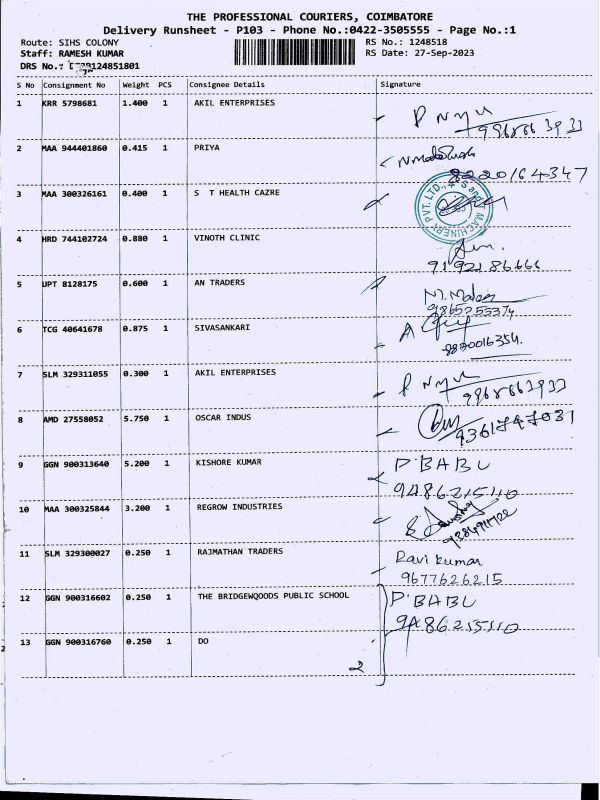 THE PROFESSIONAL COURIERS, COIMBATORE
Delivery Runsheet - P103 - Phone No.:0422-3505555 - Page No.:1
Route: SIHS COLONY RS No.: 1248518
Staff: RAMESH KUMAR RS Date: 27-Sep-2023
DRS No.:
S No Consignment No Weight PCS Consignee Details Signature
1 KRR 5798681 1.400 1 AKIL ENTERPRISES
2 MAA 944401860 0.415 1 PRIYA
8220164347
3 MAA 300326161 0.400 1 S T HEALTH CAZRE
PVT. LTD. MACHINERY
4 HRD 744102724 0.880 1 VINOTH CLINIC
5 UPT 8128175 0.600 1 AN TRADERS
6 TCG 40641678 0.875 1 SIVASANKARI
8870016354.
7 SLM 329311055 0.300 1 AKIL ENTERPRISES
8 AMD 27558052 5.750 1 OSCAR INDUS
9361747031
9 GGN 900313640 5.200 1 KISHORE KUMAR P.BABU
9486215110
10 MAA 300325844 3.200 1 REGROW INDUSTRIES
11 SLM 329300027 0.250 1 RAJMATHAN TRADERS Ravi kumar
9677626215
12 GGN 900316602 0.250 1 THE BRIDGEWQODS PUBLIC SCHOOL P.BABU
9486215110
13 GGN 900316760 0.250 1 DO
2